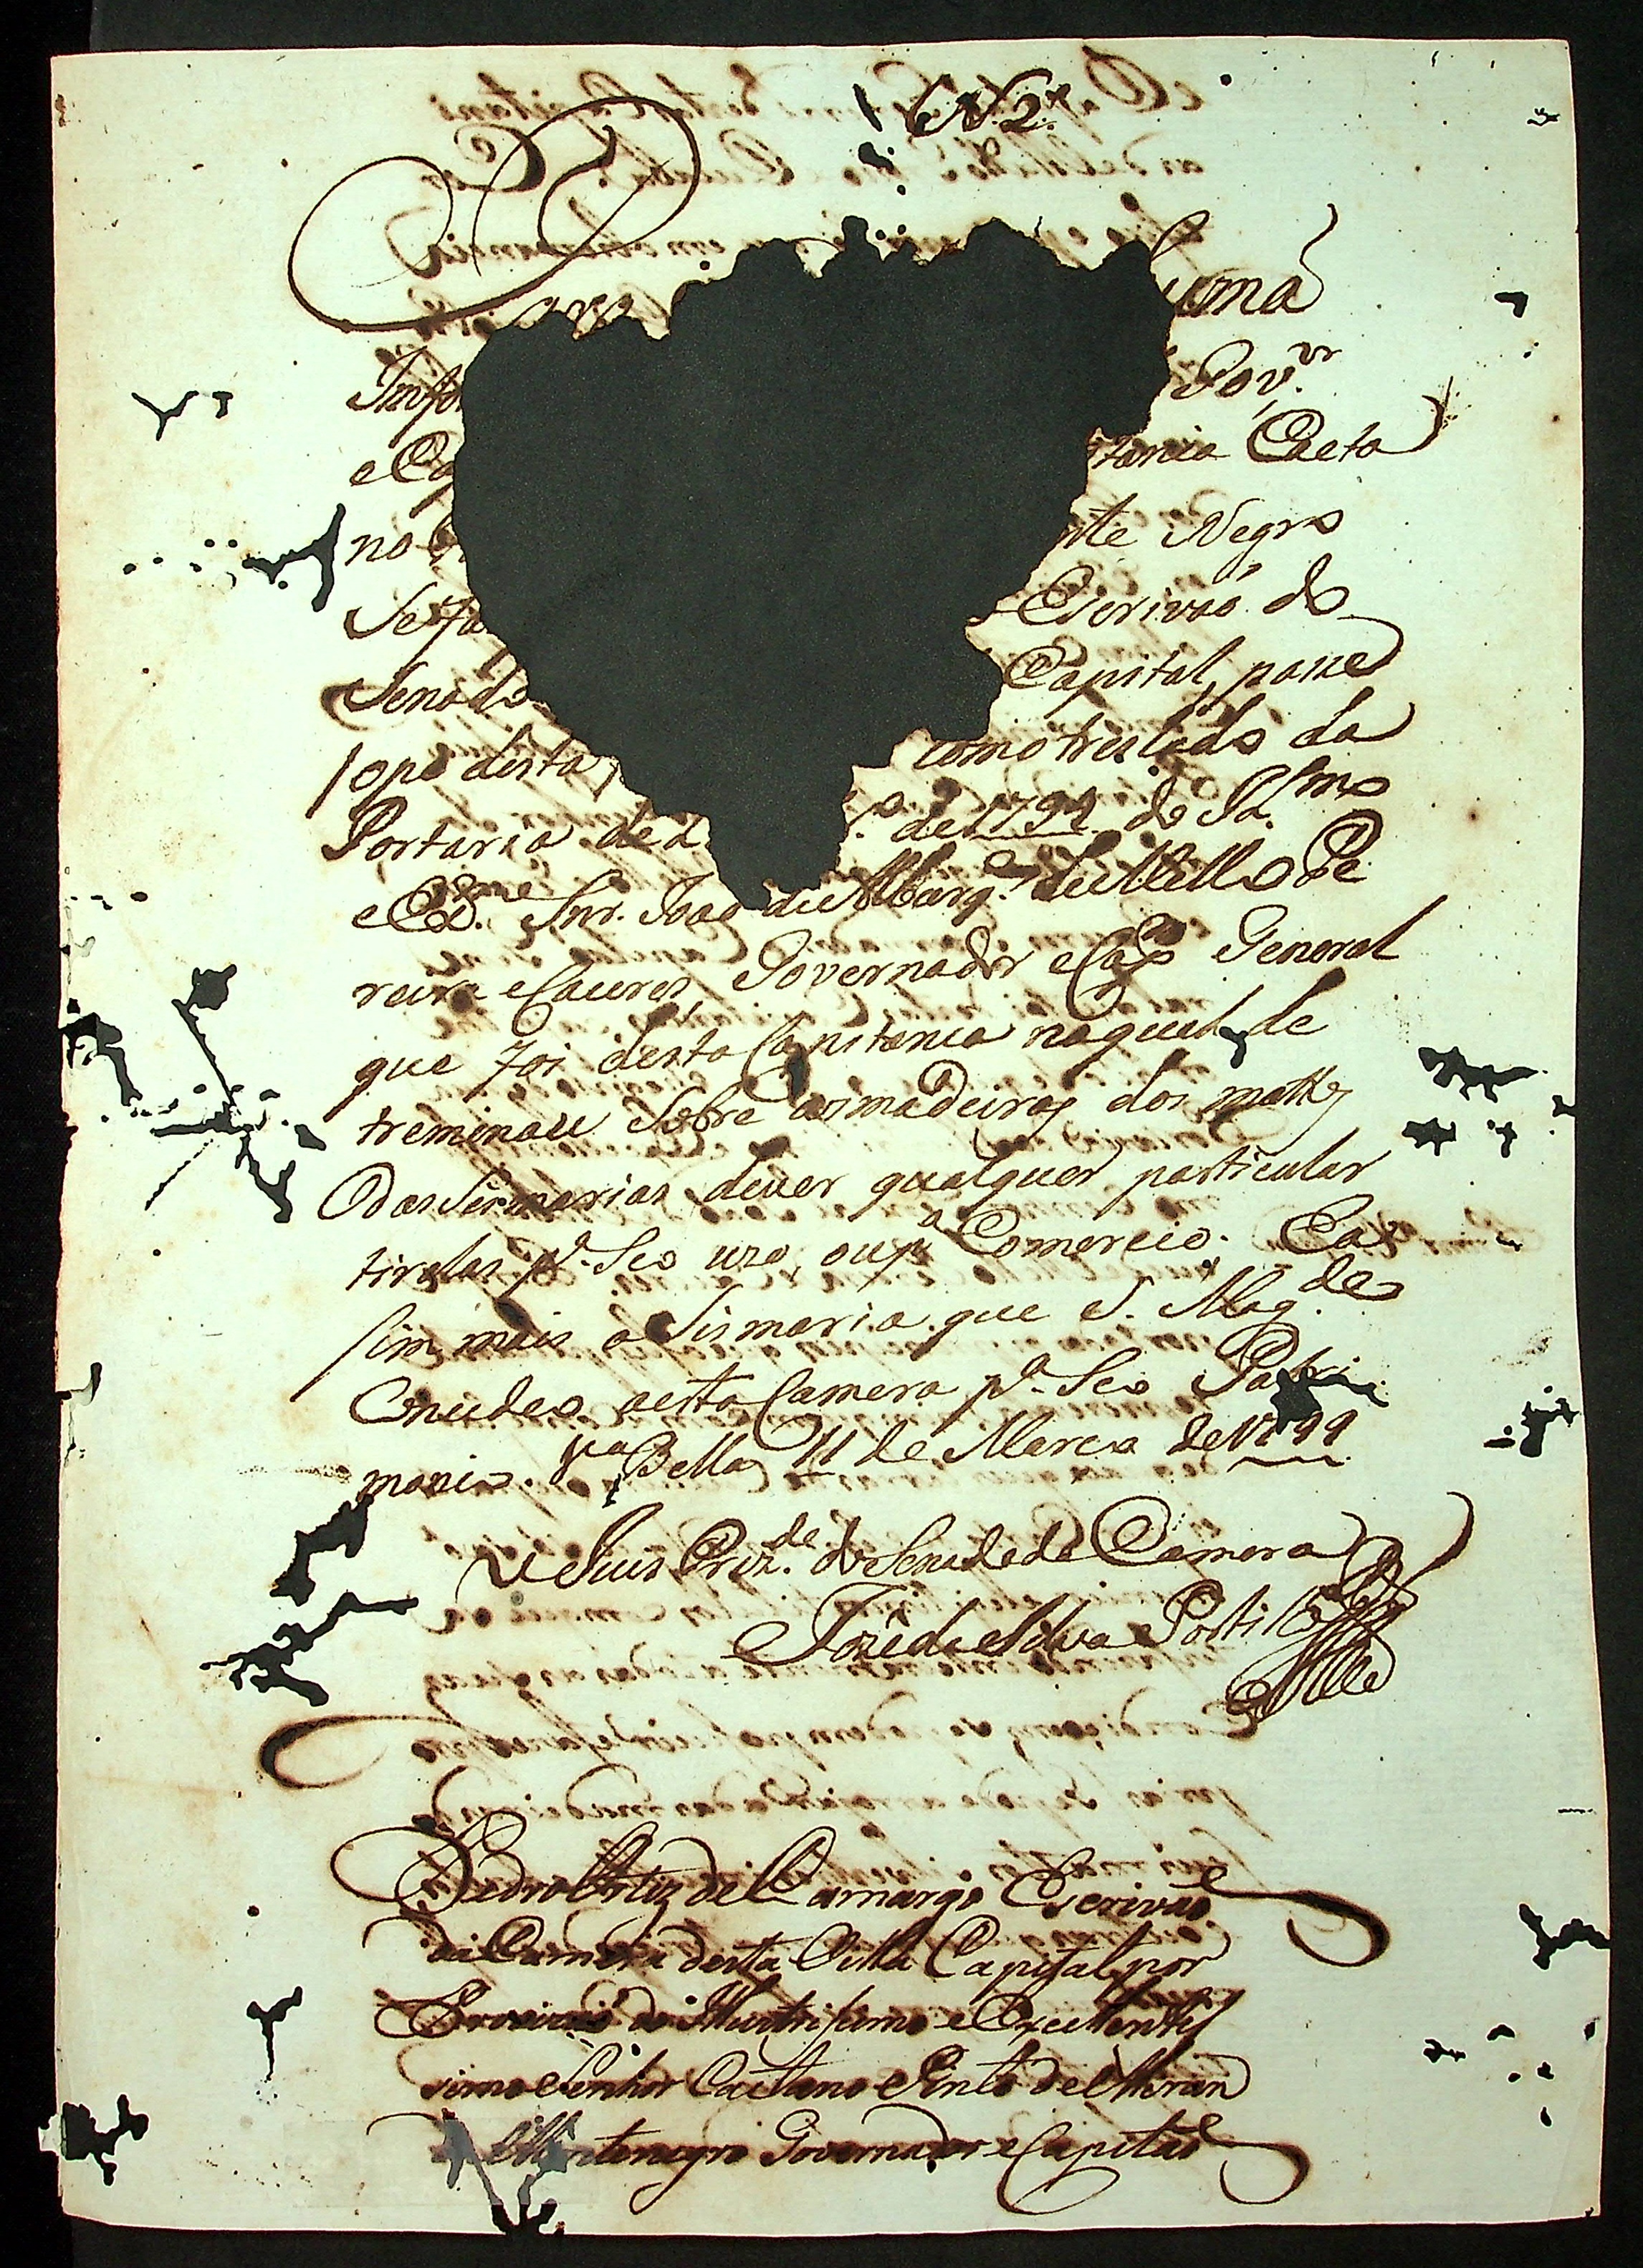 N. 2.º
uma
Imfor Gov.or
e Ca tania Caeta
no P nte Negro
Se fa Escrivaõ do
Senado Capital, passe
ao pe desta, como treslado da
Portaria de 2 .º de 1794 do Il.mo
e Ex.mo Snr. Joaõ de Albuq.e de Mello Pe
reira e Caceres, Governador e Cap General
que foi desta Capitania naquel de
treminou sobre as madeiras dos mattos
das Sismarias dever qualquer particular
tiralas p.ª Seo uzo, ou p.ª Comercio; E as
sim mais a Sismaria que S. Mag.de
Concedeo aesta Camera p.ª Seo Patri
monio. V.ª Bella 11 de Março de 1799
O Juis Prez.de do Senado da Camera
Joze da Silva Portilho
Pedro Ortiz de Camargo Escrivaõ
da Camera desta Villa Capital por
Provizaõ do Illustrissimo e Excellentis
simo Senhor Caetano Pinto de Miran
da Montenegro Governador e Capitaõ